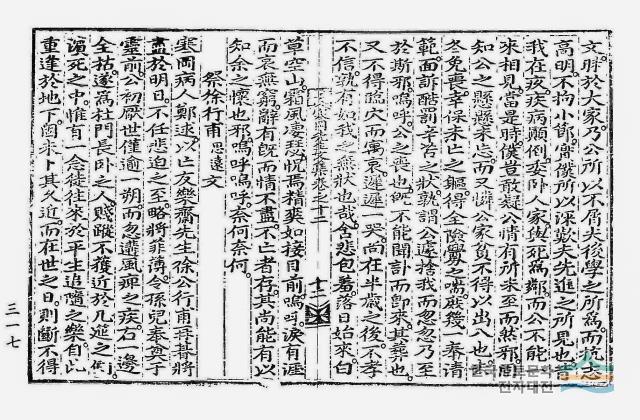 文胖於大家乃公所以不屑夫後學之所爲而抗志
高明不拘小節常僕所以深歎夫先進之所見也
我在疚疾病顚倒委卧人家與死爲鄰而公不能
來相見當是時僕豈敢疑公情有所未至而然邪
知公之懸懸未忘而又憐公家貧不得以出入也
冬免喪幸保未亡之軀得全險釁之喘庶幾一奉清
範面訴酷罰者昔之狀孰謂公遽捨我而忽忽乃至
於斯邪嗚呼公之喪也旣不能聞訃而卽來其葬也
又不得臨穴而寓哀遲遲一哭尚在半歲之後不孝
不信孰有如我之無狀也哉含悲包羞落日始來白
草空山霜風凄緊怳焉精爽如接目前嗚呼淚有涯
而哀無窮辭有旣而情不盡不亡者存其尚能有以
知余之懷也邪嗚呼嗚呼奈何奈何
祭徐行甫思遠文
寒岡病人鄭逑以亡友樂齋先生徐公行甫之葬將
盡於明日不任悲迫之至略將菲薄令孫兒奉奠于
靈前公初厭世僅逾一朔而忽遘風痺之疾右一邊
全枯遂爲杜門長卧之人賤蹤不獲近於几筵之側
濱死之中惟有一念徒往來於平生追隨之樂自此
重逢於地下固未卜其久近而在世之日則斷不得
三一七
한국문집
전자대전